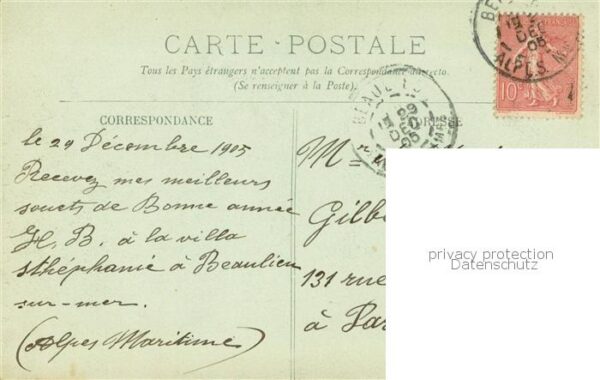 CARTE POSTALE
Tous les Pays étrangers n'acceptent pas la Correspondance au recto.
(Se renseigner à la Poste).
CORRESPONDANCE
le 29 Décembre 1905
Recevez mes meilleurs
souets de Bonne année
H. B. à la villa
sthéphanie à Beaulieu
sur-mer.
(Alpes Maritime)
Gilb
131 rue
à Par
10
ALPES
BEAULIEU
privacy protection
Datenschutz